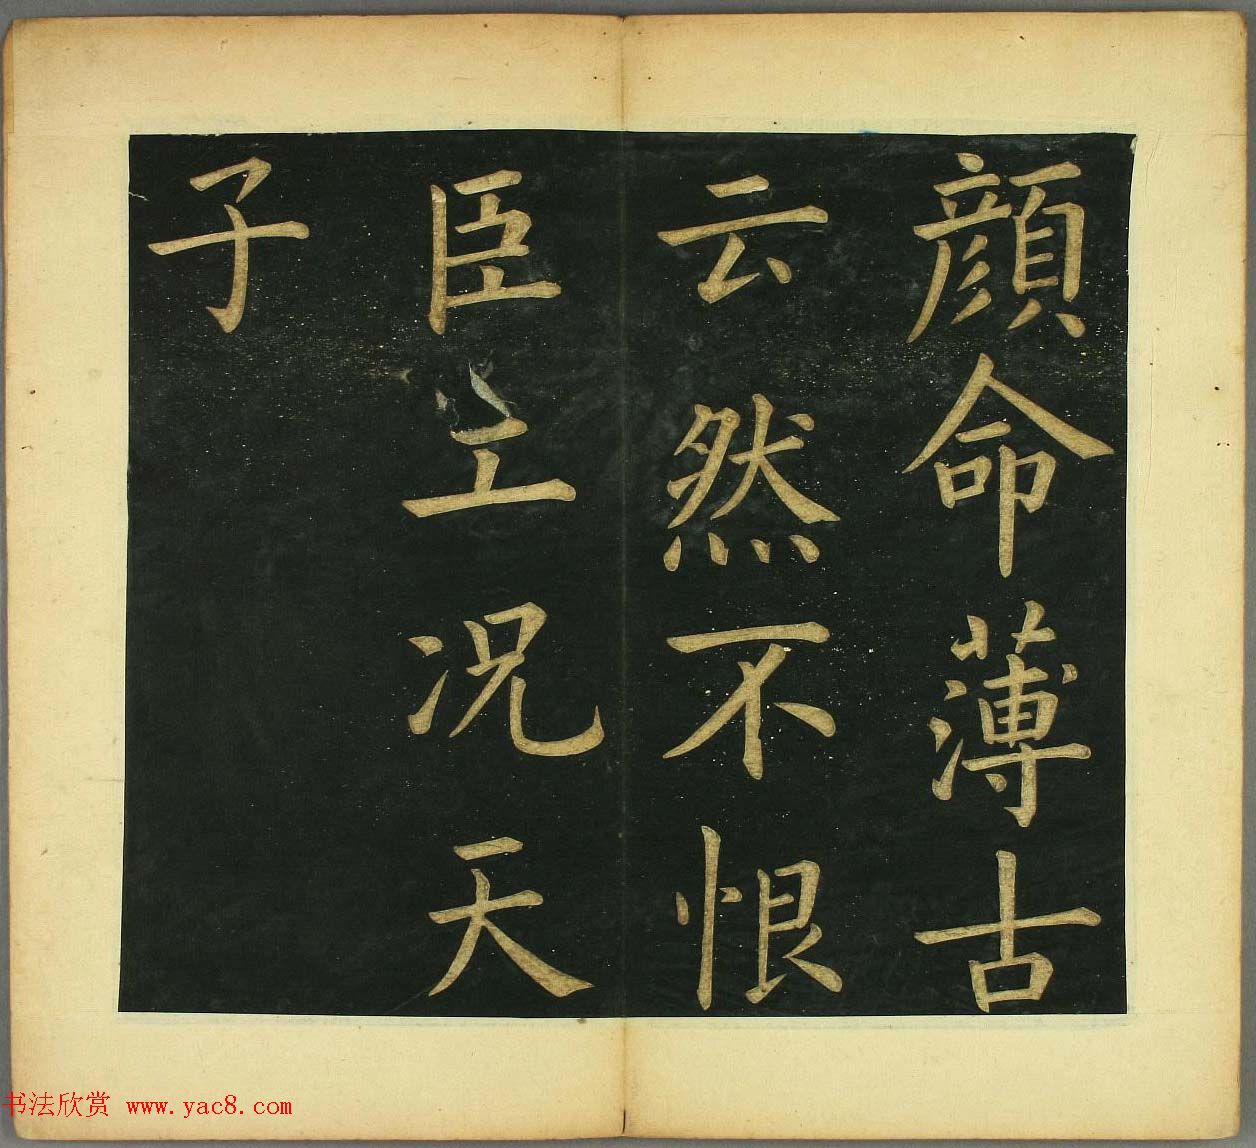 顏命薄古
云然不恨
臣工况天
子
书法欣赏 www.yac8.com